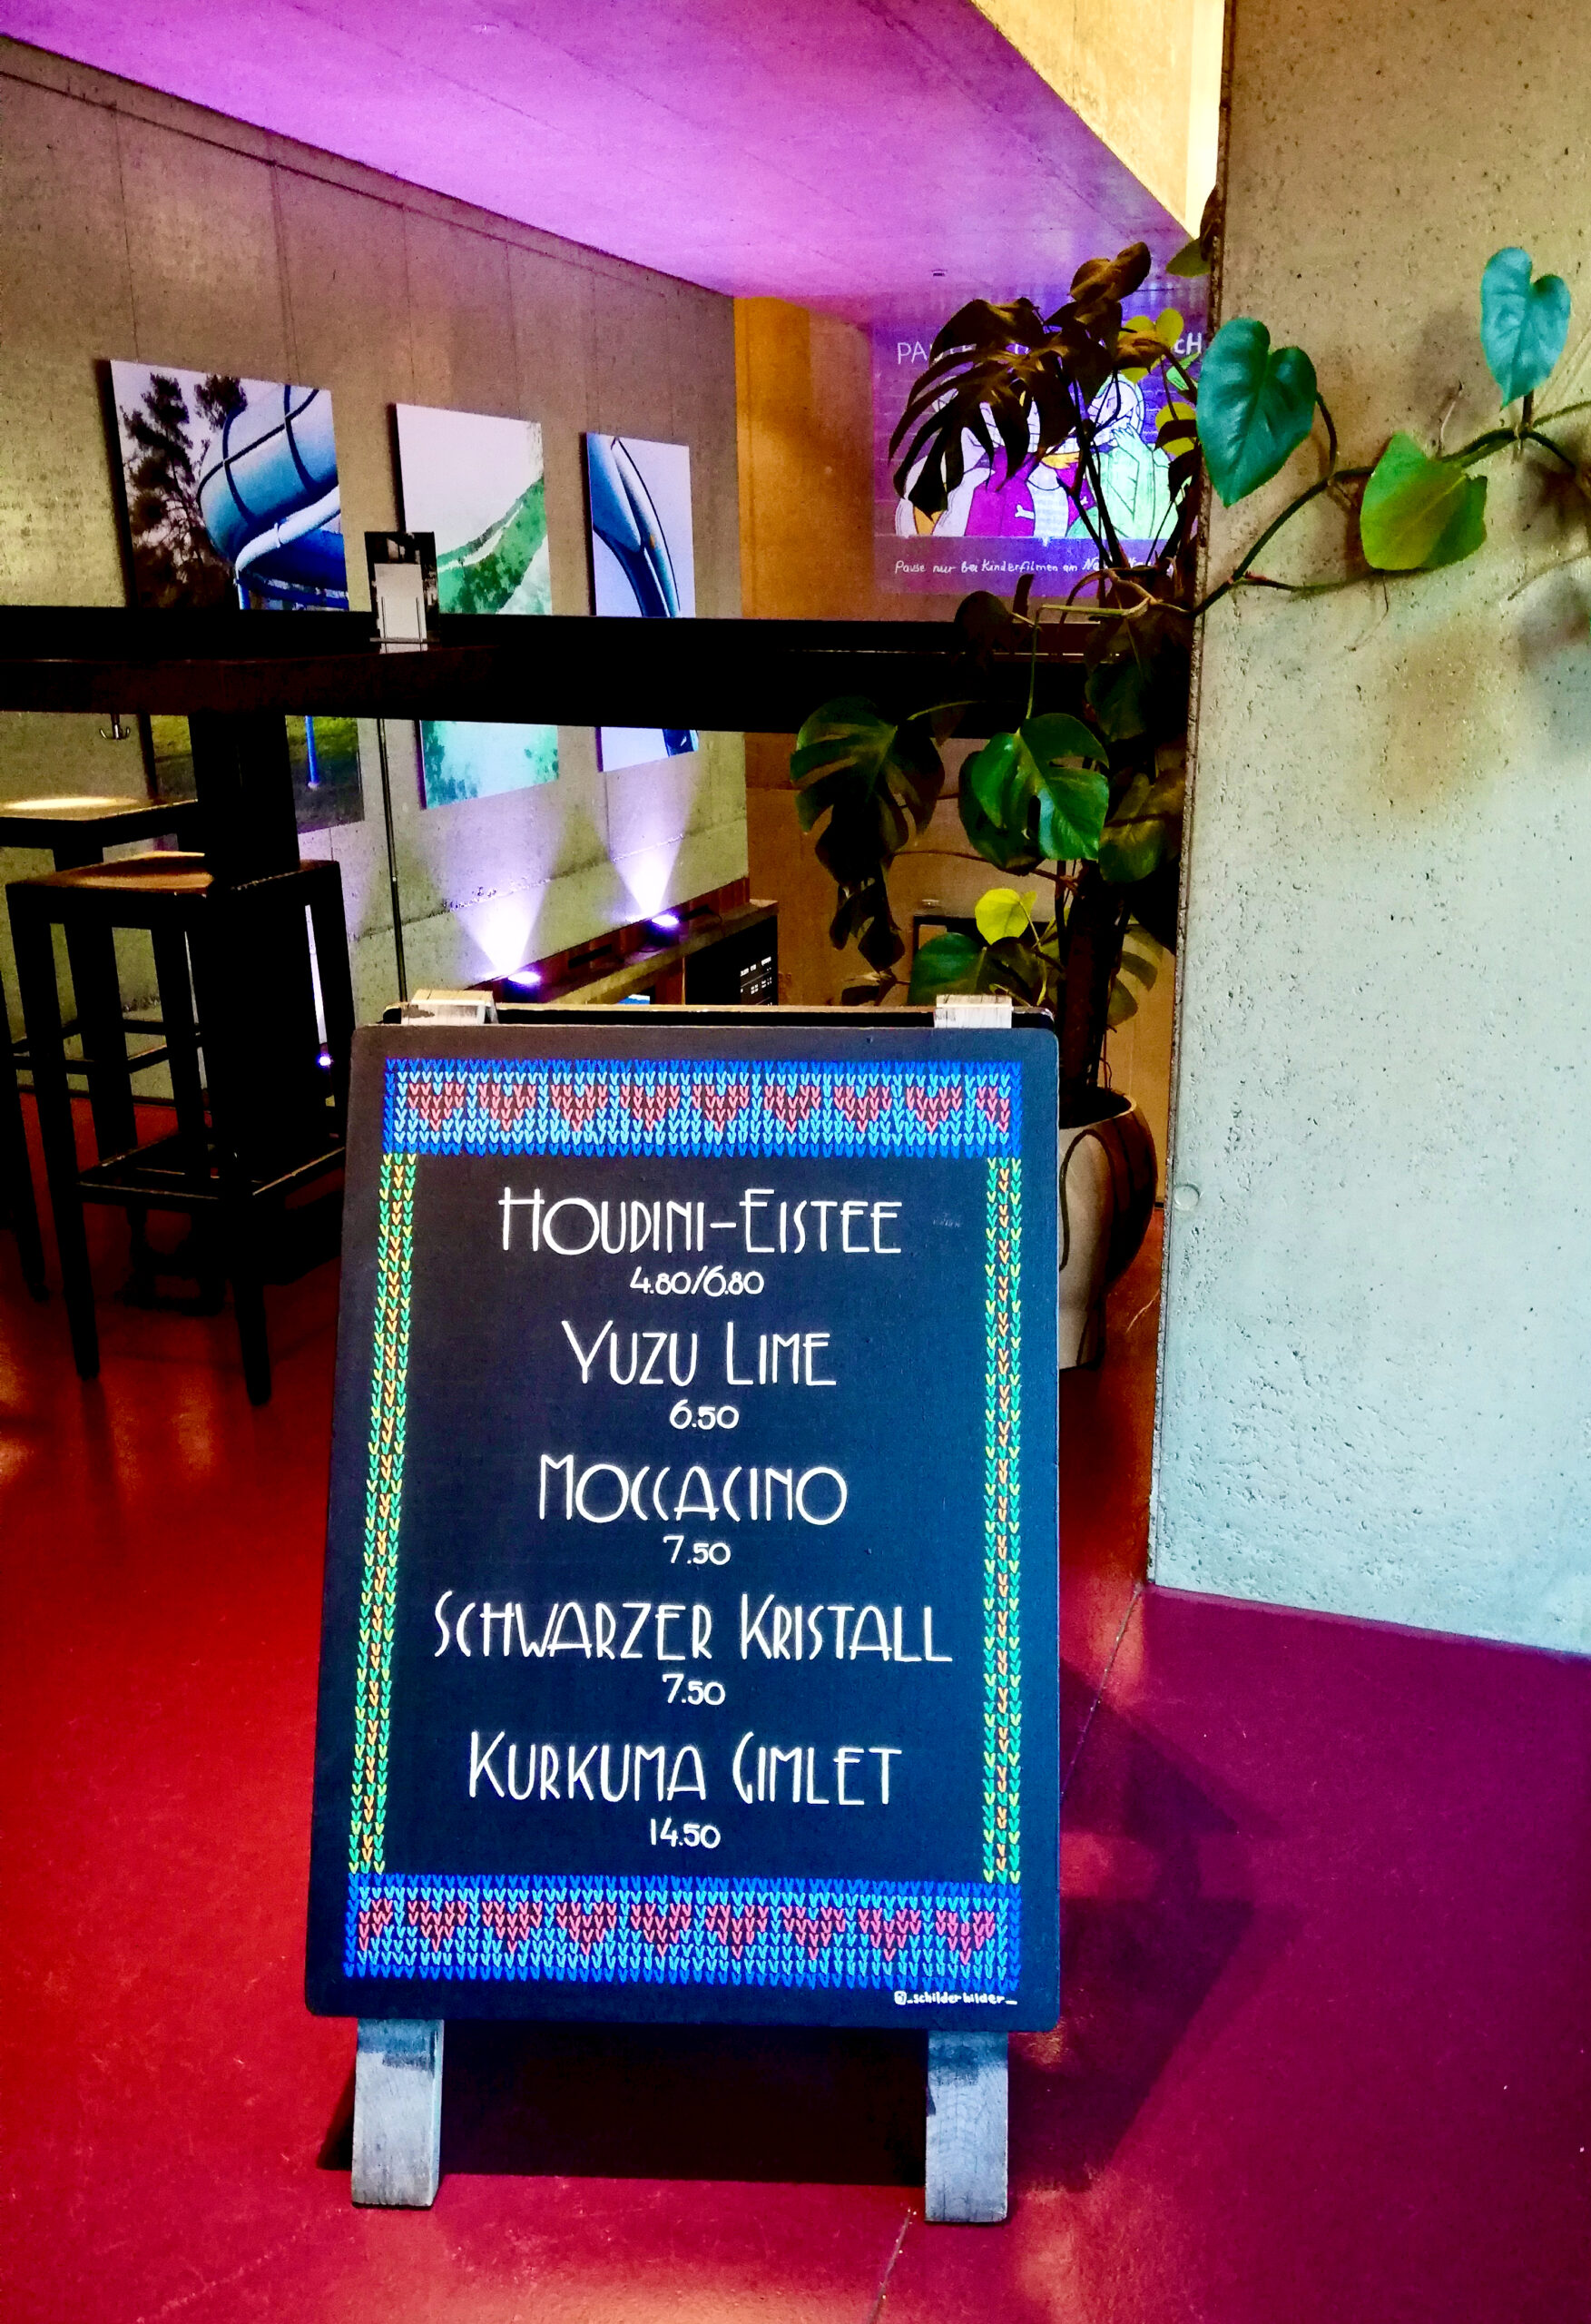 Pause nur bei Kinderfilmen am
HOUDINI-EISTEE
4.80/6.80
YUZU LIME
6.50
MOCCACINO
7.50
SCHWARZER KRISTALL
7.50
KURKUMA GIMLET
14.50
_schilderbilder_